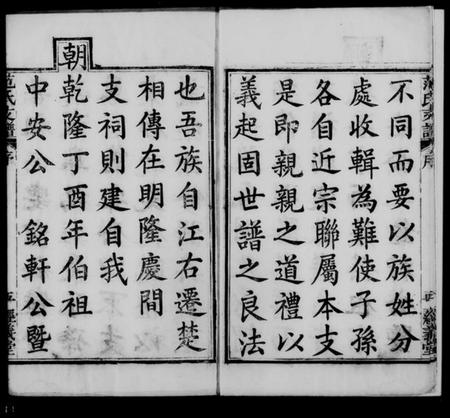 不同而要以族姓分
處收輯為難使子孫
各自近宗聯屬本支
是即親親之道禮以
義起固世譜之良法
也吾族自江右遷楚
相傳在明隆慶間
支祠則建自我
朝乾隆丁酉年伯祖
中安公 銘軒公暨
范氏支譜 序